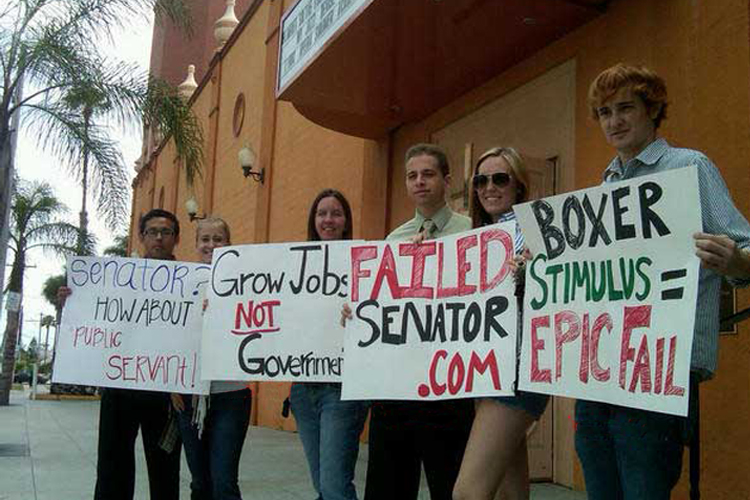 Senator?
HOW ABOUT
"PUBLIC
SERVANT!
Grow Jobs
NOT
Government
FAILED
SENATOR
.COM
BOXER
STIMULUS =
EPIC FAIL